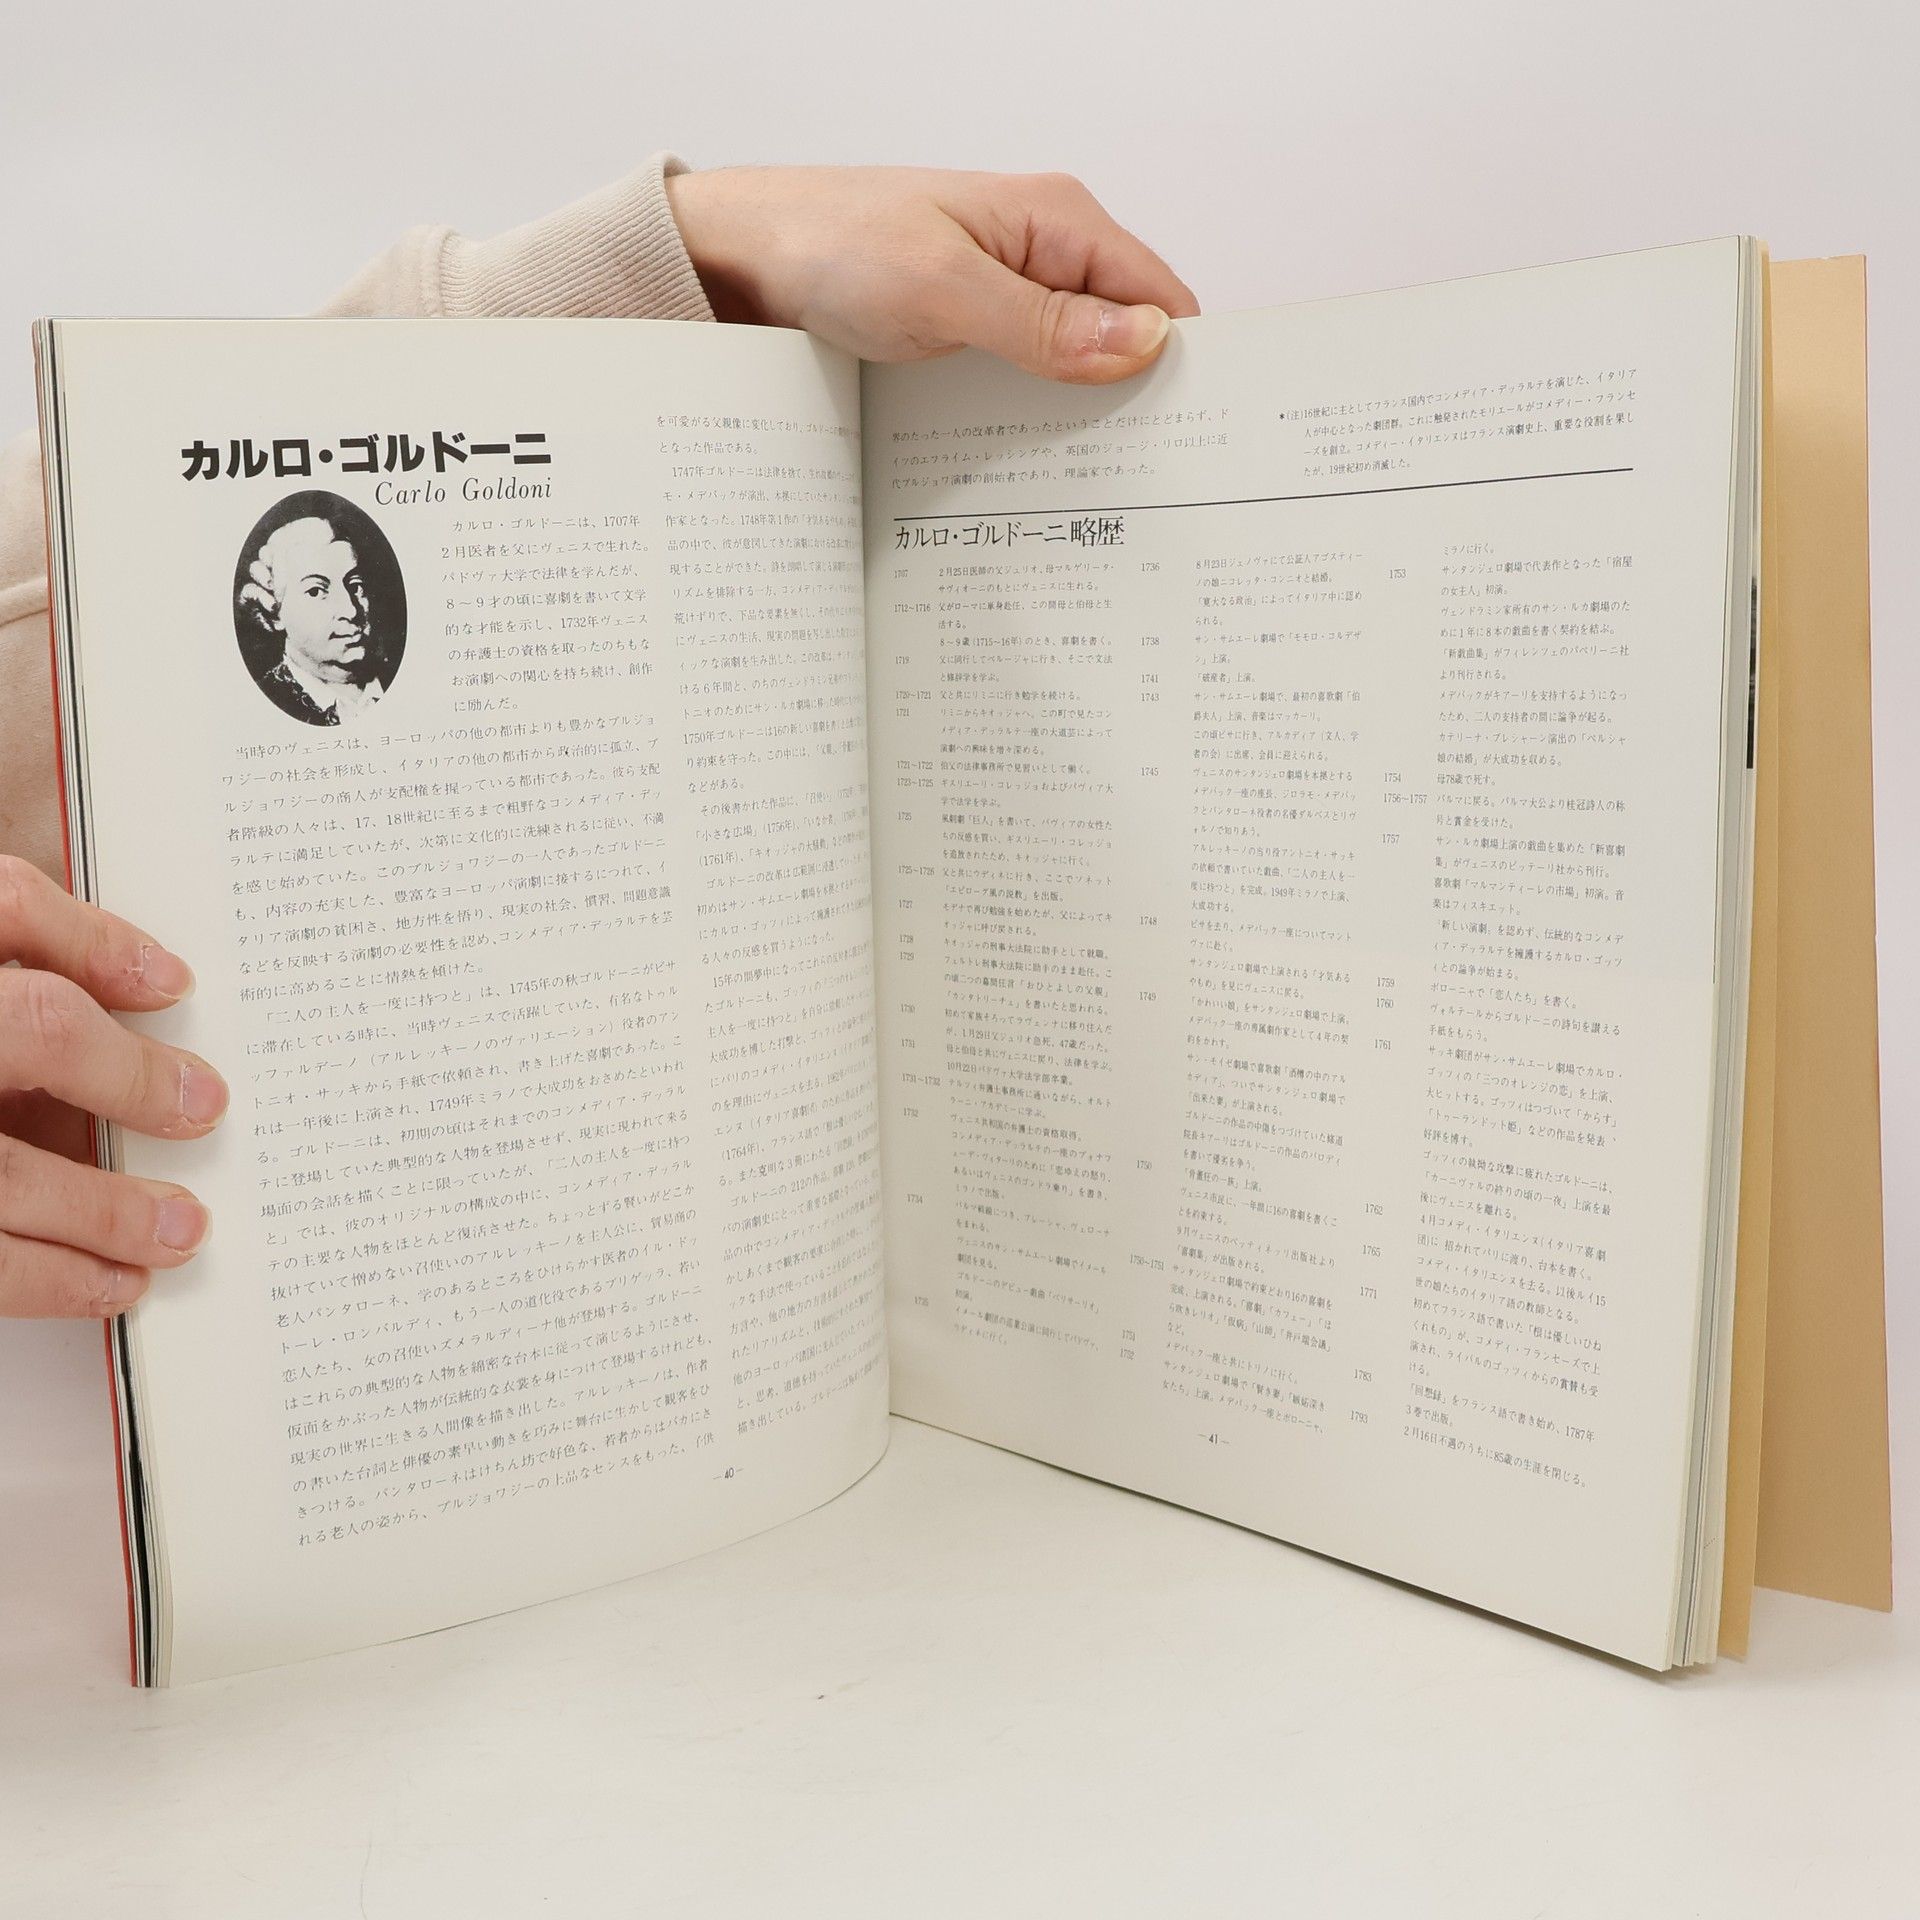 カルロ・ゴルドーニ
Carlo Goldoni
カルロ・ゴルドーニは、1707年
2月医者を父にヴェニスで生れた。
パドヴァ大学で法律を学んだが、
8〜9才の頃に喜劇を書いて文学
的な才能を示し、1732年ヴェニス
の弁護士の資格を取ったのちもな
お演劇への関心を持ち続け、創作
に励んだ。
当時のヴェニスは、ヨーロッパの他の都市よりも豊かなブルジョ
ワジーの社会を形成し、イタリアの他の都市から政治的に孤立、ブ
ルジョワジーの商人が支配権を握っている都市であった。彼ら支配
者階級の人々は、17、18世紀に至るまで粗野なコンメディア・デッ
ラルテに満足していたが、次第に文化的に洗練されるに従い、不満
を感じ始めていた。このブルジョワジーの一人であったゴルドーニ
も、内容の充実した、豊富なヨーロッパ演劇に接するにつれて、イ
タリア演劇の貧困さ、地方性を悟り、現実の社会、慣習、問題意識
などを反映する演劇の必要性を認め、コンメディア・デッラルテを芸
術的に高めることに情熱を傾けた。
「二人の主人を一度に持つと」は、1745年の秋ゴルドーニがピサ
に滞在している時に、当時ヴェニスで活躍していた、有名なトゥル
ッファルデーノ（アルレッキーノのヴァリエーション）役者のアン
トニオ・サッキから手紙で依頼され、書き上げた喜劇であった。こ
れは一年後に上演され、1749年ミラノで大成功をおさめたといわれ
る。ゴルドーニは、初期の頃はそれまでのコンメディア・デッラル
テに登場していた典型的な人物を登場させず、現実に現われて来る
場面の会話を描くことに限っていたが、「二人の主人を一度に持つ
と」では、彼のオリジナルの構成の中に、コンメディア・デッラル
テの主要な人物をほとんど復活させた。ちょっとずる賢いがどこか
抜けていて憎めない召使いのアルレッキーノを主人公に、貿易商の
老人パンタローネ、学のあるところをひけらかす医者のイル・ドッ
トーレ・ロンバルディ、もう一人の道化役であるブリゲッラ、若い
恋人たち、女の召使いズメラルディーナ他が登場する。ゴルドーニ
はこれらの典型的な人物を綿密な台本に従って演じるようにさせ、
仮面をかぶった人物が伝統的な衣裳を身につけて登場するけれども、
現実の世界に生きる人間像を描き出した。アルレッキーノは、作者
の書いた台詞と俳優の素早い動きを巧みに舞台に生かして観客をひ
きつける。パンタローネはけちん坊で好色な、若者からはバカにさ
れる老人の姿から、ブルジョワジーの上品なセンスをもった、子供
を可愛がる父親像に変化しており、ゴルドーニの
となった作品である。
1747年ゴルドーニは法律を捨て、
モ・メデバックが演出、本拠にしていたサンタンジェロ
作家となった。1748年第1作の「才気あるやもめ」
品の中で、彼が意図してきた演劇における改革
現することができた。
リズムを排除する一方、コンメディア・デッラルテの
荒けずりで、下品な要素を無くし、
にヴェニスの生活、現実の問題を写し出した
ィックな演劇を生み出した。この改革は、
ける6年間と、のちのヴェンドラミン
トニオのためにサン・ルカ劇場に移った
1750年ゴルドーニは16の新しい喜劇を書く
り約束を守った。この中には、
などがある。
その後書かれた作品に、「召使い」
「小さな広場」(1756年)、「いなか者」
(1761年)、「キオッジャの大騒動」など
ゴルドーニの改革は広範囲に浸透していた
初めはサン・サムエーレ劇場を本拠とする
にカルロ・ゴッツィによって擁護され
る人々の反感を買うようになった。
15年の間夢中になってこれらの反対者に
たゴルドーニも、ゴッツィの「三つのオレンジ
主人を一度に持つと」を自分に依頼した
大成功を博した打撃と、ゴッツィとの
にパリのコメディ・イタリエンヌ
のを理由にヴェニスを去る。
エンヌ（イタリア喜劇団）のために
(1764年)、フランス語で「根は優しい
る。また克明な3冊にわたる「回想録」
ゴルドーニの212の作品、
パの演劇史にとって重要な
品の中でコンメディア・デッラルテの
かしあくまで観客の要求に
ックな手法で使っていることを
方言や、他の地方の方言を
れたリアリズムと、技術的に
他のヨーロッパ諸国に先んじていた
と、思考、道徳を持っていたヴェニスの
描き出している。ゴルドーニは
—40—
界のたった一人の改革者であったということだけにとどまらず、ド
イツのエフライム・レッシングや、英国のジョージ・リロ以上に近
代ブルジョワ演劇の創始者であり、理論家であった。
*(注)16世紀に主としてフランス国内でコンメディア・デッラルテを演じた、イタリア
人が中心となった劇団群。これに触発されたモリエールがコメディー・フランセ
ーズを創立。コメディー・イタリエンヌはフランス演劇史上、重要な役割を果し
たが、19世紀初め消滅した。
カルロ・ゴルドーニ略歴
1707 2月25日医師の父ジュリオ、母マルゲリータ・
サヴィオーニのもとにヴェニスに生れる。
1712〜1716 父がローマに単身赴任、この間母と伯母と生
活する。
8〜9歳(1715〜16年)のとき、喜劇を書く。
1719 父に同行してペルージャに行き、そこで文法
と修辞学を学ぶ。
1720〜1721 父と共にリミニに行き勉学を続ける。
1721 リミニからキオッジャへ。この町で見たコン
メディア・デッラルテ一座の大道芸によって
演劇への興味を増々深める。
1721〜1722 伯父の法律事務所で見習いとして働く。
1723〜1725 ギスリエーリ・コレッジョおよびパヴィア大
学で法学を学ぶ。
1725 風刺劇「巨人」を書いて、パヴィアの女性た
ちの反感を買い、ギスリエーリ・コレッジョ
を追放されたため、キオッジャに行く。
1725〜1726 父と共にウディネに行き、ここでソネット
「エピローグ風の説教」を出版。
1727 モデナで再び勉強を始めたが、父によってキ
オッジャに呼び戻される。
1728 キオッジャの刑事大法院に助手として就職。
1729 フェルトレ刑事大法院に助手のまま赴任。こ
の頃二つの幕間狂言「おひとよしの父親」
「カンタトリーチェ」を書いたと思われる。
1730 初めて家族そろってラヴェンナに移り住んだ
が、1月29日父ジュリオ急死。47歳だった。
1731 母と伯母と共にヴェニスに戻り、法律を学ぶ。
10月22日パドヴァ大学法学部卒業。
1731〜1732 テルツィ弁護士事務所に通いながら、オルト
ラーニ・アカデミーに学ぶ。
1732 ヴェニス共和国の弁護士の資格取得。
コンメディア・デッラルテの一座のブォナフ
ェーデ・ヴィターリのために「恋ゆえの怒り、
あるいはヴェニスのゴンドラ乗り」を書き、
ミラノで出版。
1734 パルマ戦線につき、ブレーシャ、ヴェローナ
をまわる。
ヴェニスのサン・サムエーレ劇場でイメール
劇団を見る。
ゴルドーニのデビュー戯曲「ベリサーリオ」
初演。
1735 イメール劇団の巡業公演に同行してパドヴァ、
ウディネに行く。
1736 8月23日ジェノヴァにて公証人アゴスティー
ノの娘ニコレッタ・コンニオと結婚。
「寛大なる政治」によってイタリア中に認め
られる。
1738 サン・サムエーレ劇場で「モモロ・コルデザ
ン」上演。
1741 「破産者」上演。
1743 サン・サムエーレ劇場で、最初の喜歌劇「伯
爵夫人」上演、音楽はマッカーリ。
この頃ピサに行き、アルカディア（文人、学
者の会）に出席、会員に迎えられる。
1745 ヴェニスのサンタンジェロ劇場を本拠とする
メデバック一座の座長、ジロラモ・メデバッ
クとパンタローネ役者の名優ダルベスとリヴ
ォルノで知りあう。
アルレッキーノの当り役アントニオ・サッキ
の依頼で書いていた戯曲、「二人の主人を一
度に持つと」を完成。1949年ミラノで上演、
大成功する。
1748 ピサを去り、メデバック一座についてマント
ヴァに赴く。
サンタンジェロ劇場で上演される「才気ある
やもめ」を見にヴェニスに戻る。
1749 「かわいい娘」をサンタンジェロ劇場で上演。
メデバック一座の専属劇作家として4年の契
約をかわす。
サン・モイゼ劇場で喜歌劇「酒樽の中のアル
カディア」、ついでサンタンジェロ劇場で
「出来た妻」が上演される。
ゴルドーニの作品の中傷をつづけていた修道
院長キアーリはゴルドーニの作品のパロディ
を書いて優劣を争う。
1750 「骨董狂の一族」上演。
ヴェニス市民に、一年間に16の喜劇を書くこ
とを約束する。
9月ヴェニスのベッティネッリ出版社より
「喜劇集」が出版される。
1750〜1751 サンタンジェロ劇場で約束どおり16の喜劇を
完成、上演される。「喜劇」「カフェー」「ほ
ら吹きレリオ」「仮病」「山師」「井戸端会議」
など。
1751 メデバック一座と共にトリノに行く。
1752 サンタンジェロ劇場で「賢き妻」「嫉妬深き
女たち」上演。メデバック一座とボローニャ、
ミラノに行く。
1753 サンタンジェロ劇場で代表作となった「宿屋
の女主人」初演。
ヴェンドラミン家所有のサン・ルカ劇場のた
めに1年に8本の戯曲を書く契約を結ぶ。
「新戯曲集」がフィレンツェのパペリーニ社
より刊行される。
メデバックがキアーリを支持するようになっ
たため、二人の支持者の間に論争が起る。
カテリーナ・ブレシャーン演出の「ペルシャ
娘の結婚」が大成功を収める。
1754 母78歳で死す。
1756〜1757 パルマに戻る。パルマ大公より桂冠詩人の称
号と賞金を受けた。
1757 サン・ルカ劇場上演の戯曲を集めた「新喜劇
集」がヴェニスのピッテーリ社から刊行。
喜歌劇「マルマンティーレの市場」初演。音
楽はフィスキエット。
「新しい演劇」を認めず、伝統的なコンメデ
ィア・デッラルテを擁護するカルロ・ゴッツ
ィとの論争が始まる。
1759 ボローニャで「恋人たち」を書く。
1760 ヴォルテールからゴルドーニの詩句を讃える
手紙をもらう。
1761 サッキ劇団がサン・サムエーレ劇場でカルロ・
ゴッツィの「三つのオレンジの恋」を上演、
大ヒットする。ゴッツィはつづいて「からす」
「トゥーランドット姫」などの作品を発表、
好評を博す。
ゴッツィの執拗な攻撃に疲れたゴルドーニは、
「カーニヴァルの終りの頃の一夜」上演を最
後にヴェニスを離れる。
1762 4月コメディ・イタリエンヌ(イタリア喜劇
団)に招かれてパリに渡り、台本を書く。
1765 コメディ・イタリエンヌを去る。以後ルイ15
世の娘たちのイタリア語の教師となる。
1771 初めてフランス語で書いた「根は優しいひね
くれもの」が、コメディ・フランセーズで上
演され、ライバルのゴッツィからの賞賛も受
ける。
1783 「回想録」をフランス語で書き始め、1787年
3巻で出版。
1793 2月16日不遇のうちに85歳の生涯を閉じる。
—41—